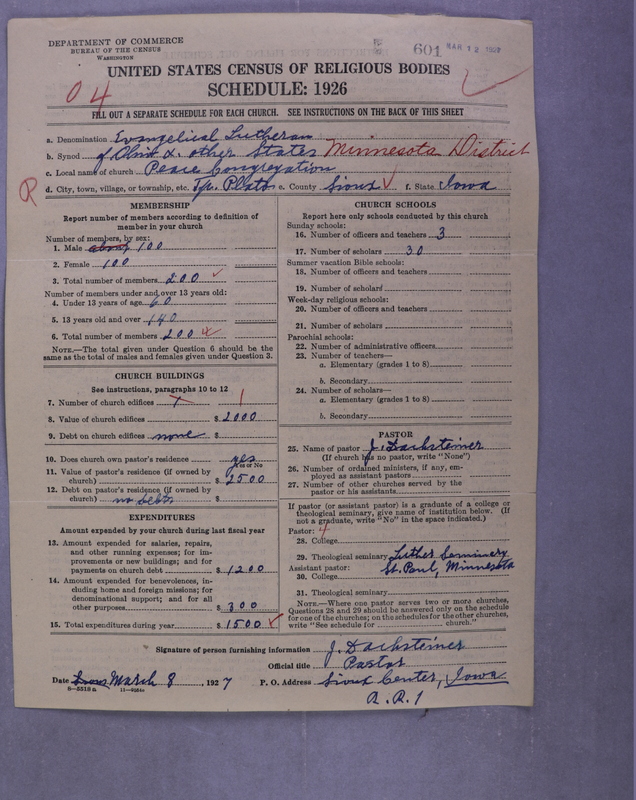 DEPARTMENT OF COMMERCE
BUREAU OF THE CENSUS
WASHINGTON
601 MAR 12 1927
UNITED STATES CENSUS OF RELIGIOUS BODIES
SCHEDULE: 1926
04
FILL OUT A SEPARATE SCHEDULE FOR EACH CHURCH. SEE INSTRUCTIONS ON THE BACK OF THIS SHEET
a. Denomination Evangelical Lutheran
b. Synod of Ohio & other States Minnesota District
c. Local name of church Peace Congregation
R
d. City, town, village, or township, etc. Tp. Plato e. County Sioux f. State Iowa
MEMBERSHIP
Report number of members according to definition of
member in your church
Number of members, by sex:
1. Male about 100
2. Female 100
3. Total number of members 200
Number of members under and over 13 years old:
4. Under 13 years of age 60
5. 13 years old and over 140
6. Total number of members 200
NOTE.—The total given under Question 6 should be the
same as the total of males and females given under Question 3.
CHURCH BUILDINGS
See instructions, paragraphs 10 to 12
7. Number of church edifices 1 1
8. Value of church edifices $ 2000
9. Debt on church edifices none $
10. Does church own pastor's residence yes
Yes or No
11. Value of pastor's residence (if owned by
church) $ 2500
12. Debt on pastor's residence (if owned by
church) no debts $
EXPENDITURES
Amount expended by your church during last fiscal year
13. Amount expended for salaries, repairs,
and other running expenses; for im-
provements or new buildings; and for
payments on church debt $ 1200
14. Amount expended for benevolences, in-
cluding home and foreign missions; for
denominational support; and for all
other purposes $ 300
15. Total expenditures during year $ 1500
CHURCH SCHOOLS
Report here only schools conducted by this church
Sunday schools:
16. Number of officers and teachers 3
17. Number of scholars 30
Summer vacation Bible schools:
18. Number of officers and teachers
19. Number of scholars
Week-day religious schools:
20. Number of officers and teachers
21. Number of scholars
Parochial schools:
22. Number of administrative officers
23. Number of teachers—
a. Elementary (grades 1 to 8)
b. Secondary
24. Number of scholars—
a. Elementary (grades 1 to 8)
b. Secondary
PASTOR
25. Name of pastor J. Dachsteiner
(If church has no pastor, write "None")
26. Number of ordained ministers, if any, em-
ployed as assistant pastors
27. Number of other churches served by the
pastor or his assistants
If pastor (or assistant pastor) is a graduate of a college or
theological seminary, give name of institution below. (If
not a graduate, write "No" in the space indicated.)
Pastor: 4
28. College
29. Theological seminary Luther Seminary
Assistant pastor: St. Paul, Minnesota
30. College
31. Theological seminary
NOTE.—Where one pastor serves two or more churches,
Questions 28 and 29 should be answered only on the schedule
for one of the churches; on the schedules for the other churches,
write "See schedule for church."
Signature of person furnishing information J. Dachsteiner
Official title Pastor
Date March 8, 1927 P. O. Address Sioux Center, Iowa
R. R. 1
8—5518 a